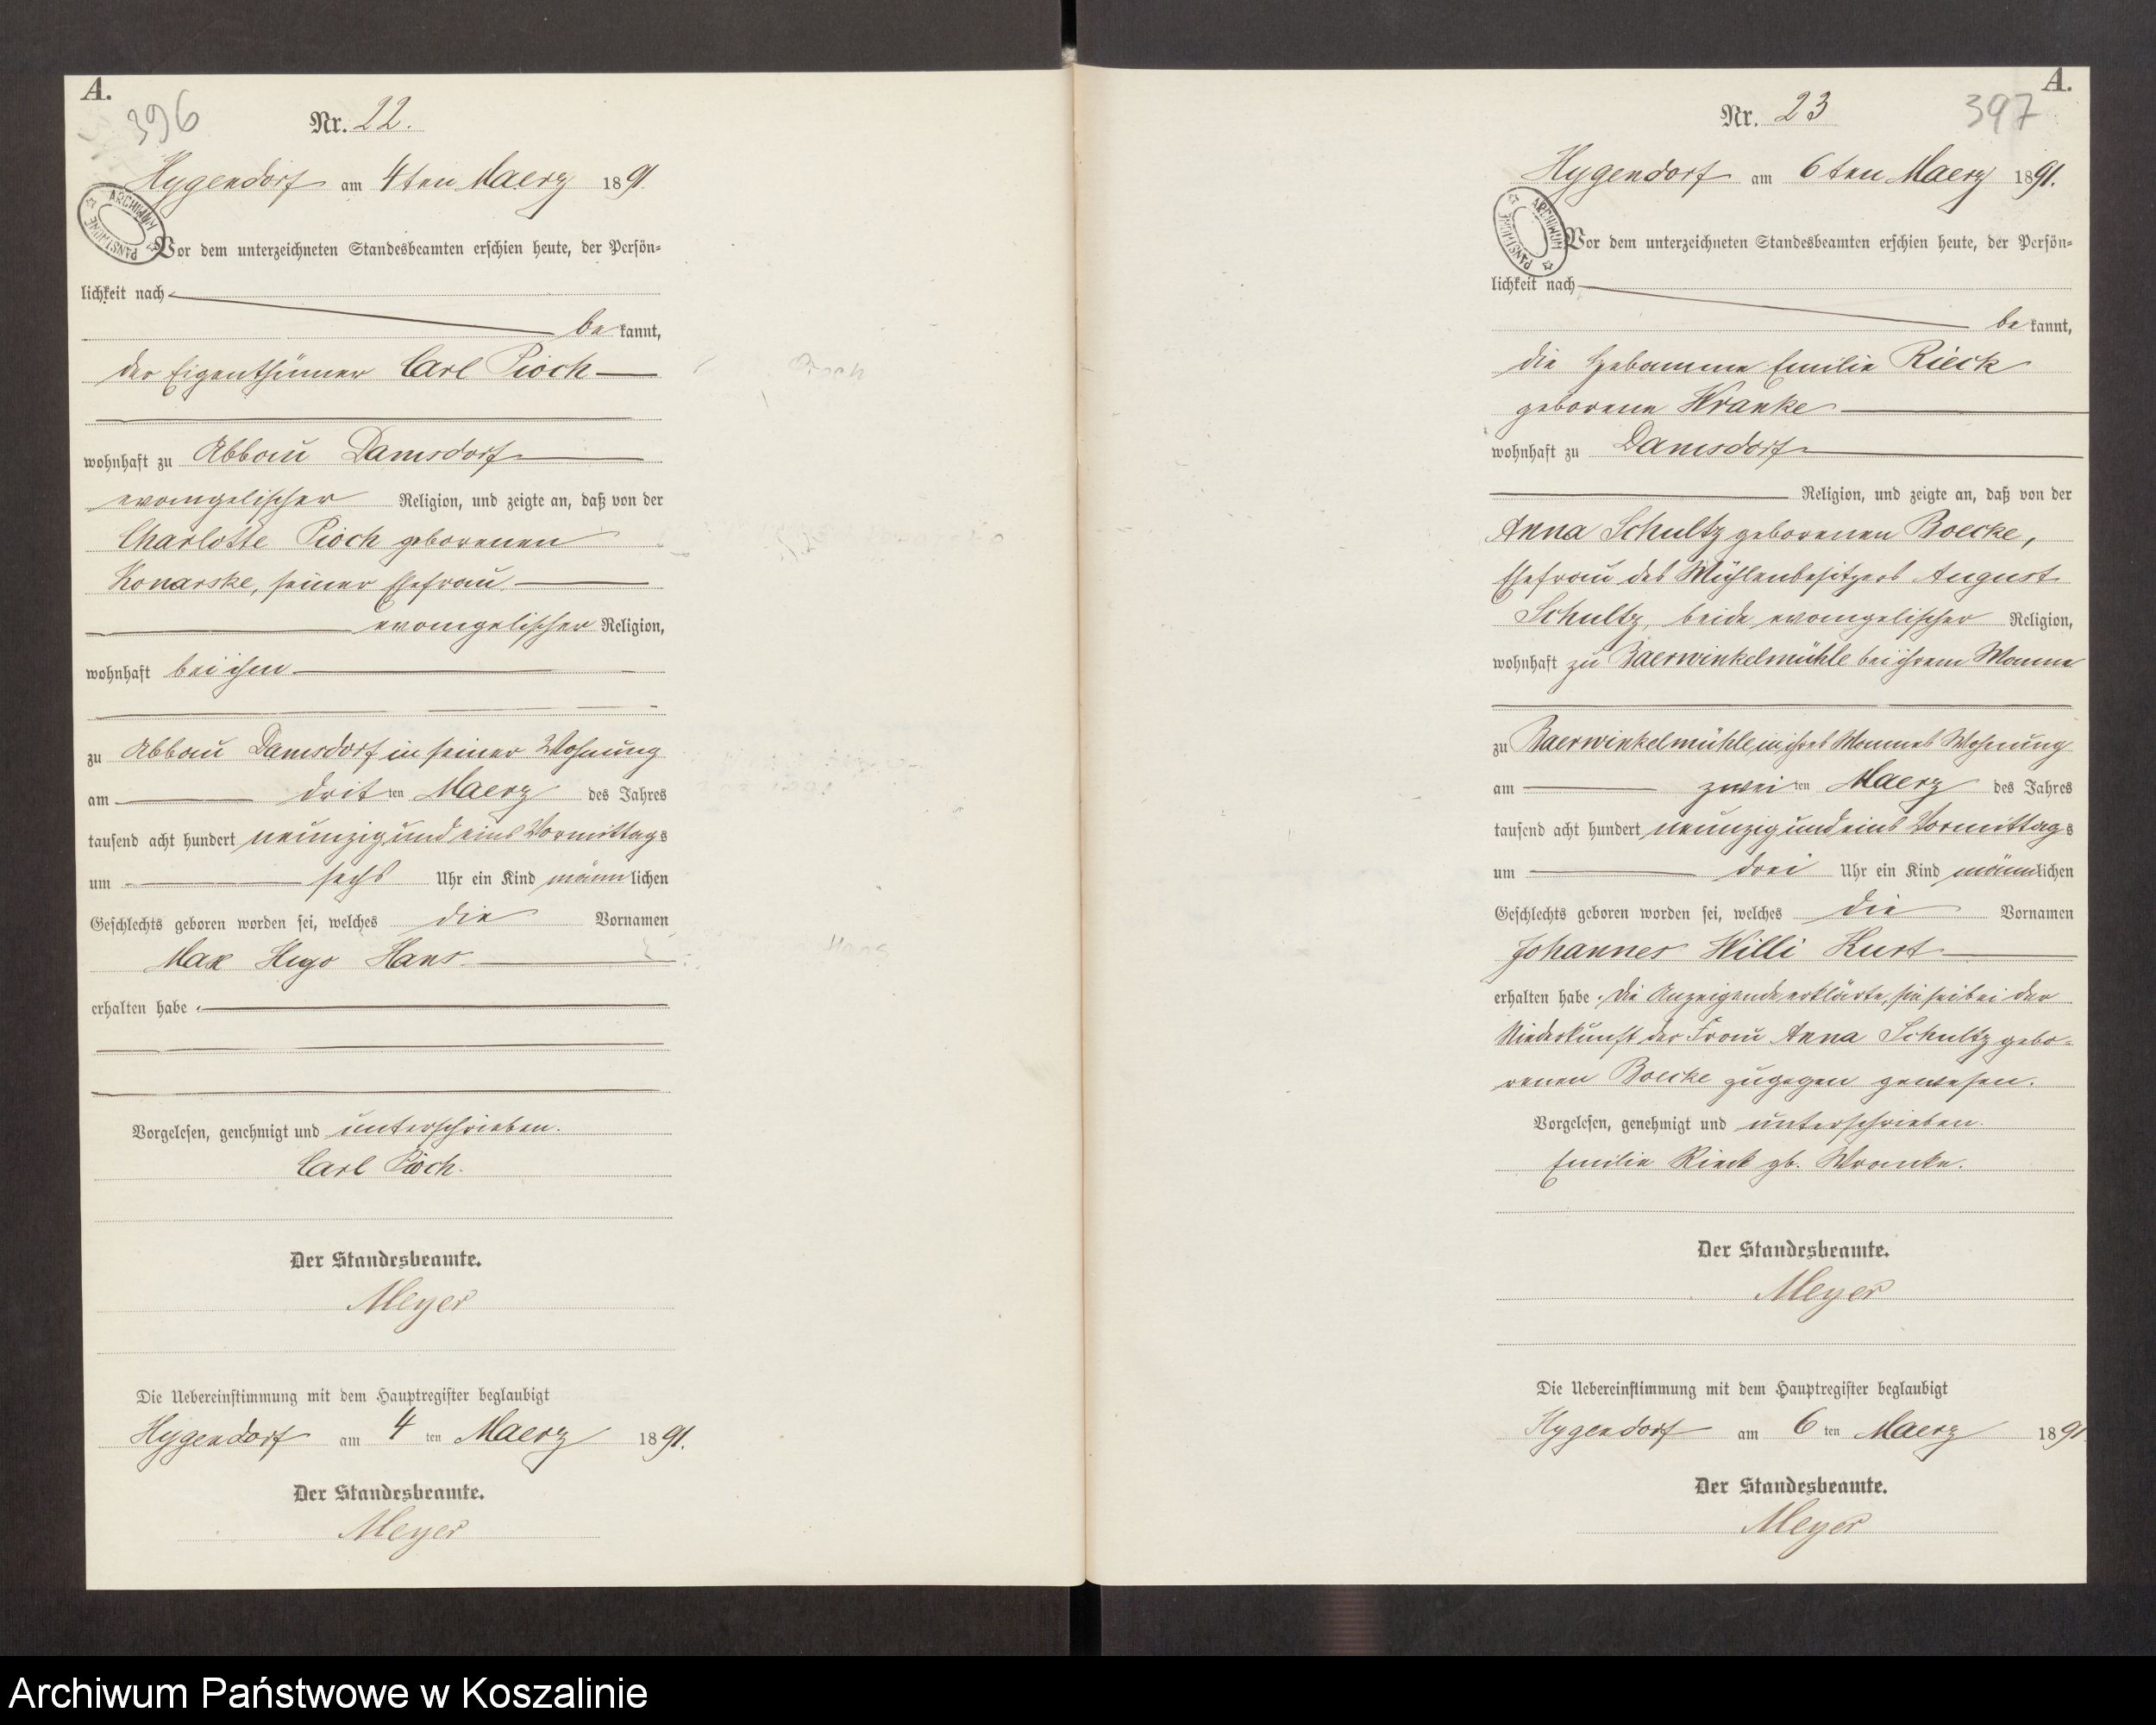 A.
396
Nr. 22.
Hygendorf am 4ten Maerz 1891.
ARCHIWUM PAŃSTWOWE
Vor dem unterzeichneten Standesbeamten erschien heute, der Persön-
lichkeit nach
bekannt,
der Eigenthümer Carl Pioch
wohnhaft zu Abbau Damsdorf
evangelischer Religion, und zeigte an, daß von der
Charlotte Pioch geborenen
Konarske, seiner Ehefrau
evangelischer Religion,
wohnhaft bei ihm
zu Abbau Damsdorf in seiner Wohnung
am dritten Maerz des Jahres
tausend acht hundert neunzig und eins Vormittags
um sechs Uhr ein Kind männlichen
Geschlechts geboren worden sei, welches die Vornamen
Max Hugo Hans
erhalten habe.
Vorgelesen, genehmigt und unterschrieben.
Carl Pioch.
Der Standesbeamte.
Meyer
Die Uebereinstimmung mit dem Hauptregister beglaubigt
Hygendorf am 4ten Maerz 1891.
Der Standesbeamte.
Meyer
A.
397
Nr. 23
Hygendorf am 6ten Maerz 1891.
ARCHIWUM PAŃSTWOWE
Vor dem unterzeichneten Standesbeamten erschien heute, der Persön-
lichkeit nach
bekannt,
die Hebamme Emilie Rieck
geborene Wranke
wohnhaft zu Damsdorf
Religion, und zeigte an, daß von der
Anna Schultz geborenen Boecke,
Ehefrau des Mühlenbesitzers August
Schultz, beide evangelischer Religion,
wohnhaft zu Baerwinkelmühle bei ihrem Manne
zu Baerwinkelmühle in ihres Mannes Wohnung
am zweiten Maerz des Jahres
tausend acht hundert neunzig und eins Vormittags
um drei Uhr ein Kind männlichen
Geschlechts geboren worden sei, welches die Vornamen
Johannes Willi Kurt
erhalten habe. Die Anzeigende erklärte, sie sei bei der
Niederkunft der Frau Anna Schultz gebo-
renen Boecke zugegen gewesen.
Vorgelesen, genehmigt und unterschrieben.
Emilie Rieck gb. Wranke.
Der Standesbeamte.
Meyer
Die Uebereinstimmung mit dem Hauptregister beglaubigt
Hygendorf am 6ten Maerz 1891
Der Standesbeamte.
Meyer
Archiwum Państwowe w Koszalinie